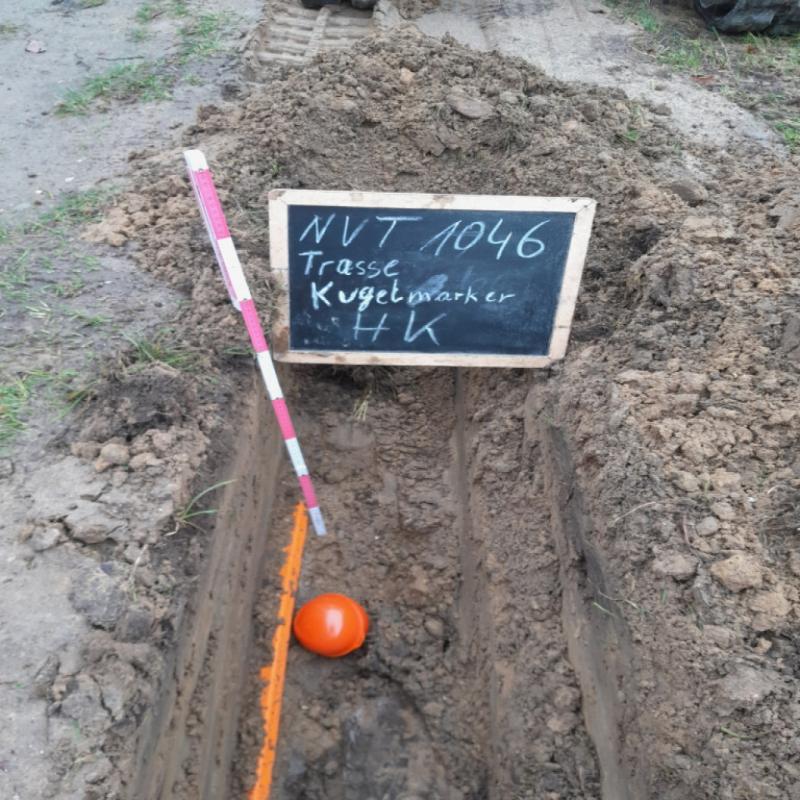 NVT 1046
Trasse
Kugelmarker
HK